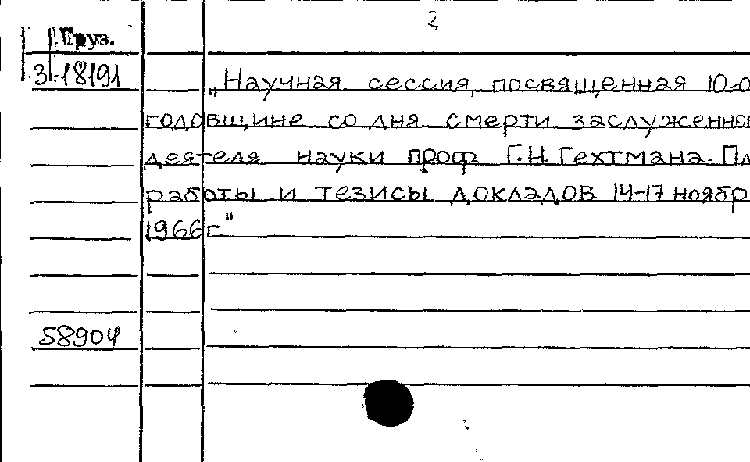 2
Груз.
3-18191
„Научная сессия, посвященная 10-о
годовщине со дня смерти заслуженно
деятеля науки проф Г.Н. Гехтмана. Пл
работы и тезисы докладов 14-17 ноябр
1966 г"
58904